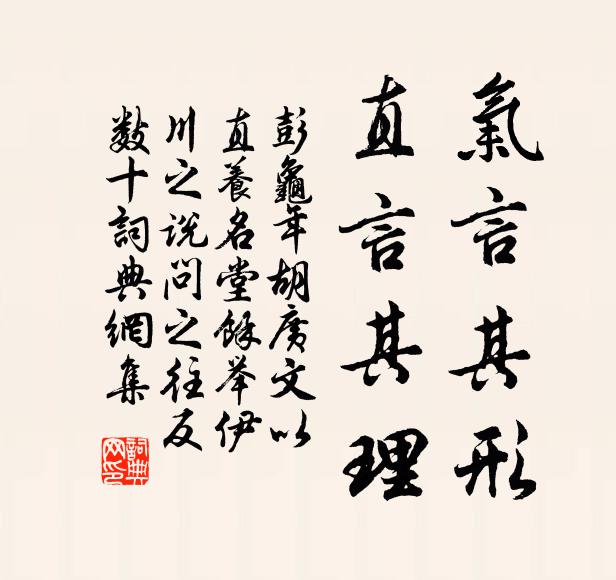 氣言其形
直言其理
彭龜年胡廣文以
直養名堂餘舉伊
川之說問之往反
數十詞典網集
詞典網印